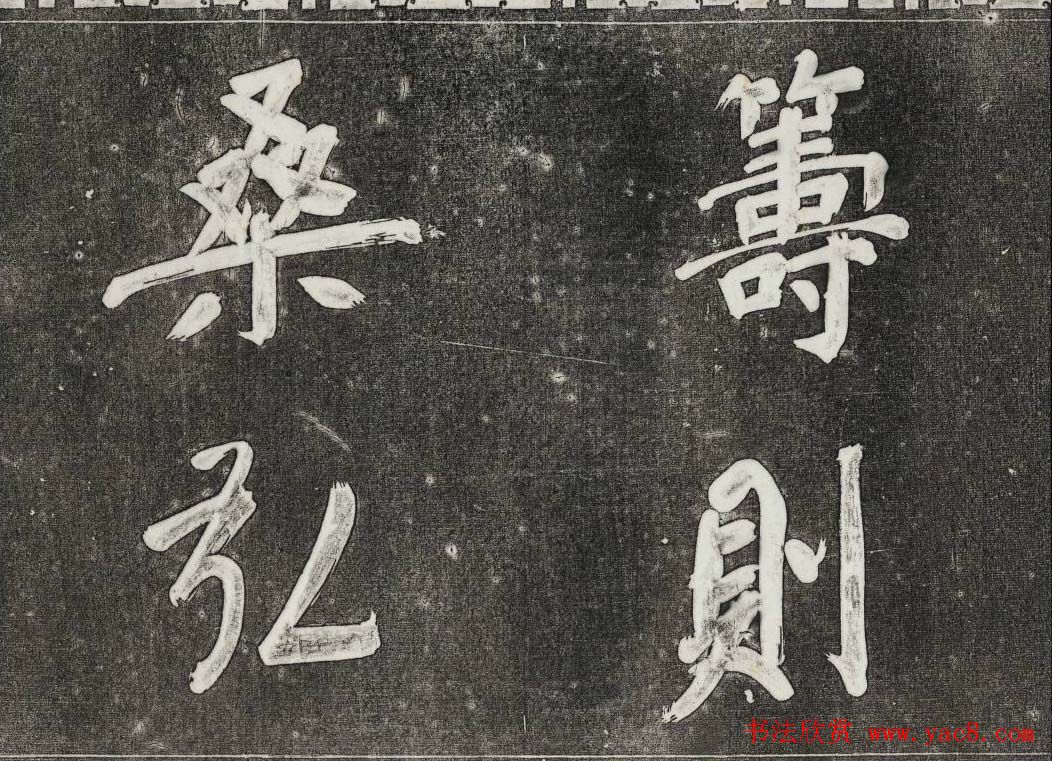 籌則
桑弘
书法欣赏 www.yac8.com